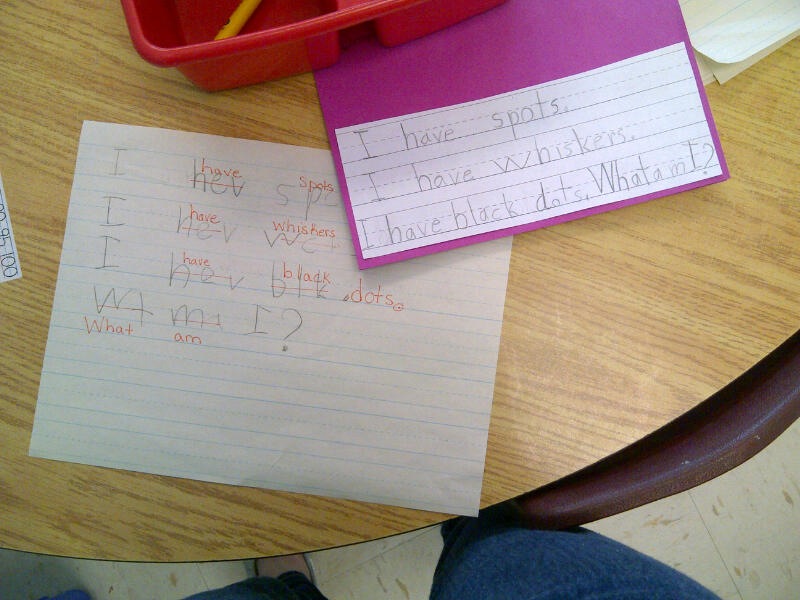 I have spots.
I have whiskers.
I have black dots. What am I?
have spots
I hev
have whiskers
I hev
have black
I hev blk .dots.
Wt m I ?
What am
95 100